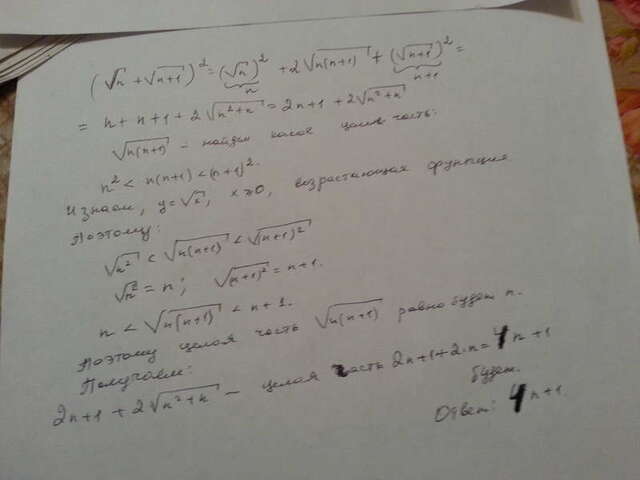 (√n + √(n+1))² = (√n)² + 2√(n(n+1)) + (√(n+1))² =
n n+1
= n + n + 1 + 2√(n²+n) = 2n+1 + 2√(n²+n)
√(n(n+1)) – найдем какое целая часть:
n² < n(n+1) < (n+1)².
И знаем, y=√x, x≥0, возрастающая функция
Поэтому:
√n² < √(n(n+1)) < √(n+1)²
√n² = n; √(n+1)² = n+1.
n < √(n(n+1)) < n+1.
Поэтому целая часть √(n(n+1)) равно будет n.
Получаем:
2n+1 + 2√(n²+n) – целая часть 2n+1+2·n = 4n+1
будет.
Ответ: 4n+1.